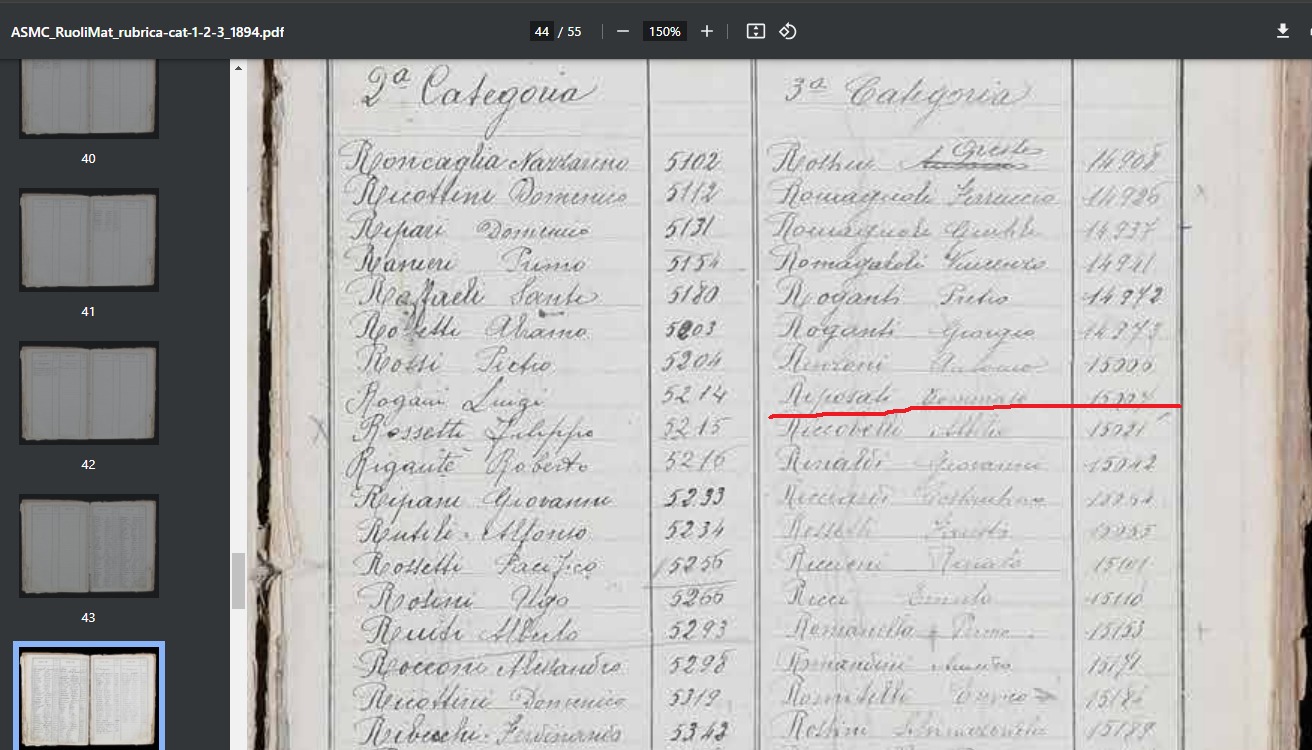 ASMC_RuoliMat_rubrica-cat-1-2-3_1894.pdf
44 / 55
150%
40
41
42
43
2ª Categoria
3ª Categoria
Roncaglia Nazzareno 5102
Ricottini Domenico 5112
Ripari Domenico 5131
Ranieri Primo 5154
Raffaeli Sante 5180
Rossi Pietro 5204
Rogani Luigi 5214
Rossetti Filippo 5215
Rigante Roberto 5216
Ripani Giovanni 5233
Rutili Alfonso 5234
Rossetti Pacifico 5256
Rosini Ugo 5266
Alberto 5293
Rocconi Alessandro 5298
Ricottini Domenico 5319
Ribecchi Ferdinando 5343
Oreste 14908
Romagnoli Ferruccio 14926
Romagnoli 14937
Vincenzo 14941
Roganti Pietro 14972
Roganti Giorgio 14973
Renzoni Antonio 15006
Riposati
Riccobelli Attilio 15021
Rinaldi Giovanni 15042
Ricciardi
Rossetti
Riccioni Renato 15101
Ricci 15110
Primo 15153
Romandini 15171
15189